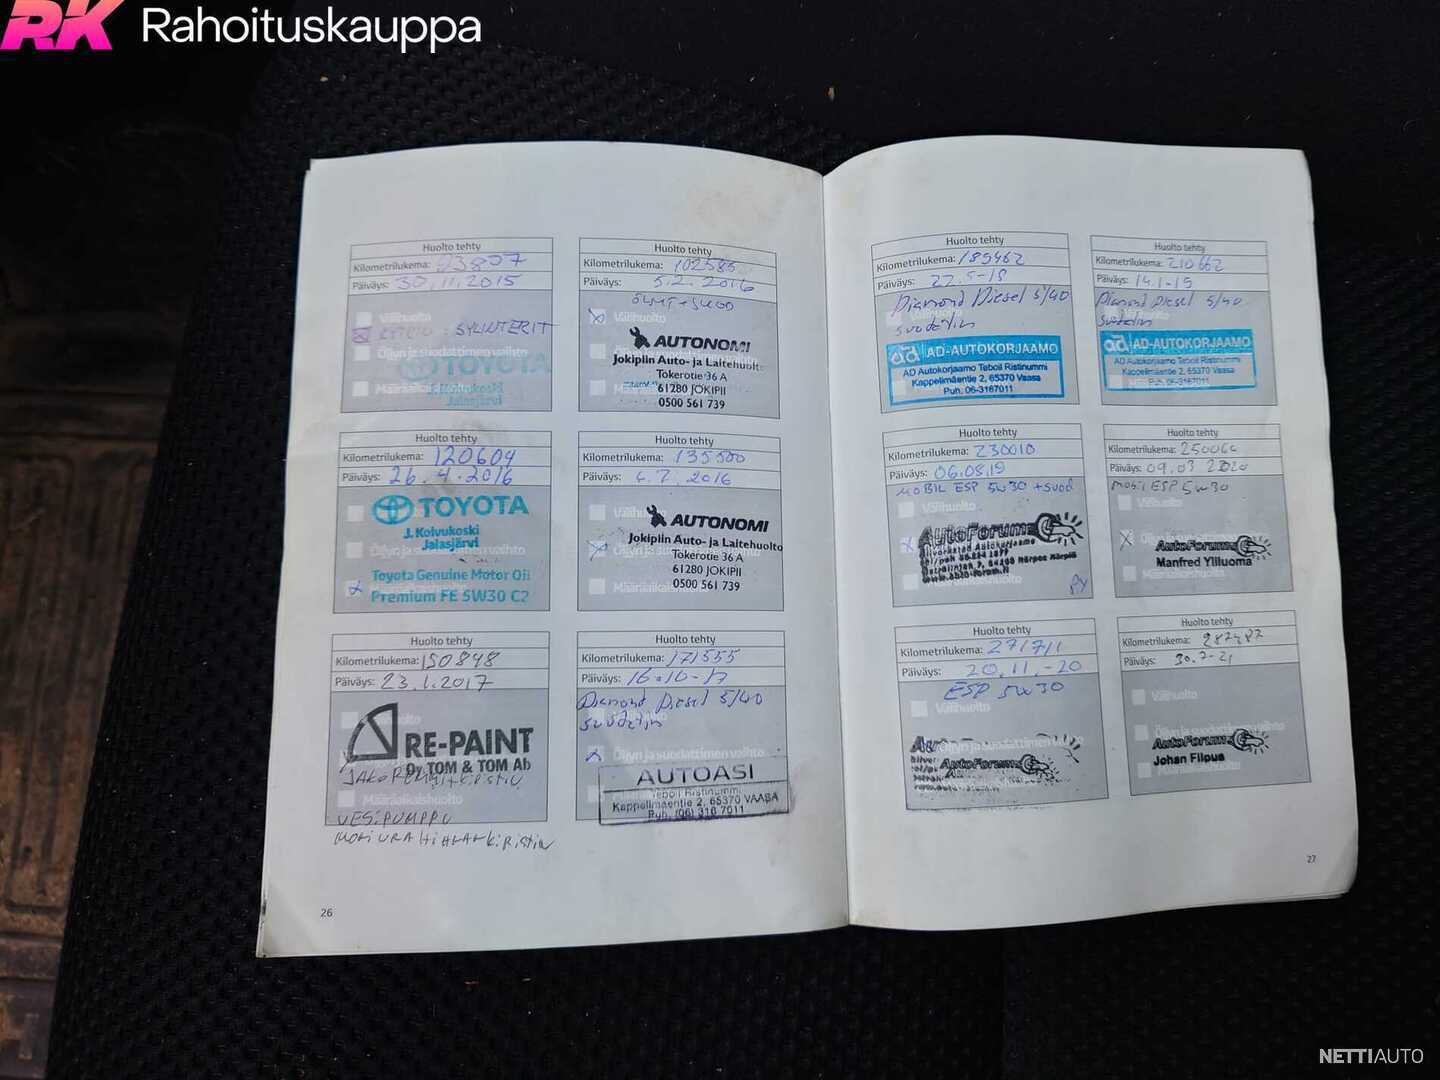 RK Rahoituskauppa
Huolto tehty
Kilometrilukema: 93807
Päiväys: 30.11.2015
Välihuolto
SYLINTERIT
Öljyn ja suodattimen vaihto
TOYOTA
J. Koivukoski
Jalasjärvi
Huolto tehty
Kilometrilukema: 102585
Päiväys: 5.2.2016
ÖLJYT + SUOD
Välihuolto
AUTONOMI
Jokipiin Auto- ja Laitehuolto
Tokerotie 36 A
61280 JOKIPII
0500 561 739
Huolto tehty
Kilometrilukema: 120604
Päiväys: 26.4.2016
TOYOTA
J. Koivukoski
Jalasjärvi
Öljyn ja suodattimen vaihto
Toyota Genuine Motor Oil
Premium FE 5W30 C2
Huolto tehty
Kilometrilukema: 135500
Päiväys: 6.7.2016
Välihuolto
AUTONOMI
Jokipiin Auto- ja Laitehuolto
Tokerotie 36 A
61280 JOKIPII
Määräaikaishuolto
0500 561 739
Huolto tehty
Kilometrilukema: 150848
Päiväys: 23.1.2017
Välihuolto
RE-PAINT
Oy TOM & TOM Ab
JAKOPÄÄ
Määräaikaishuolto
VESIPUMPPU
Huolto tehty
Kilometrilukema: 171555
Päiväys: 16-10-17
Diamond Diesel 5/40
suodatin
Öljyn ja suodattimen vaihto
AUTOASI
Teboil Ristinummi
Kappelimäentie 2, 65370 VAASA
Puh. (06) 316 7011
26
Huolto tehty
Kilometrilukema: 185462
Päiväys: 22.5-18
Diamond Diesel 5/40
suodatin
ad AD-AUTOKORJAAMO
AD Autokorjaamo Teboil Ristinummi
Kappelimäentie 2, 65370 Vaasa
Puh. 06-3167011
Huolto tehty
Kilometrilukema: 210662
Päiväys: 14.1-19
Diamond Diesel 5/40
suodatin
ad AD-AUTOKORJAAMO
AD Autokorjaamo Teboil Ristinummi
Kappelimäentie 2, 65370 Vaasa
Puh. 06-3167011
Huolto tehty
Kilometrilukema: 230010
Päiväys: 06.08.19
MOBIL ESP 5W30 + suod
Välihuolto
AutoForum
Huolto tehty
Kilometrilukema: 250066
Päiväys: 09.03 2020
MOBIL ESP 5W30
Välihuolto
AutoForum
Manfred Yliluoma
Määräaikaishuolto
Huolto tehty
Kilometrilukema: 271711
Päiväys: 20.11.-20
ESP 5W30
Välihuolto
Öljyn ja suodattimen vaihto
AutoForum
Huolto tehty
Kilometrilukema: 287487
Päiväys: 30.7-21
Välihuolto
Öljyn ja suodattimen vaihto
AutoForum
Johan Filpus
27
NETTIAUTO